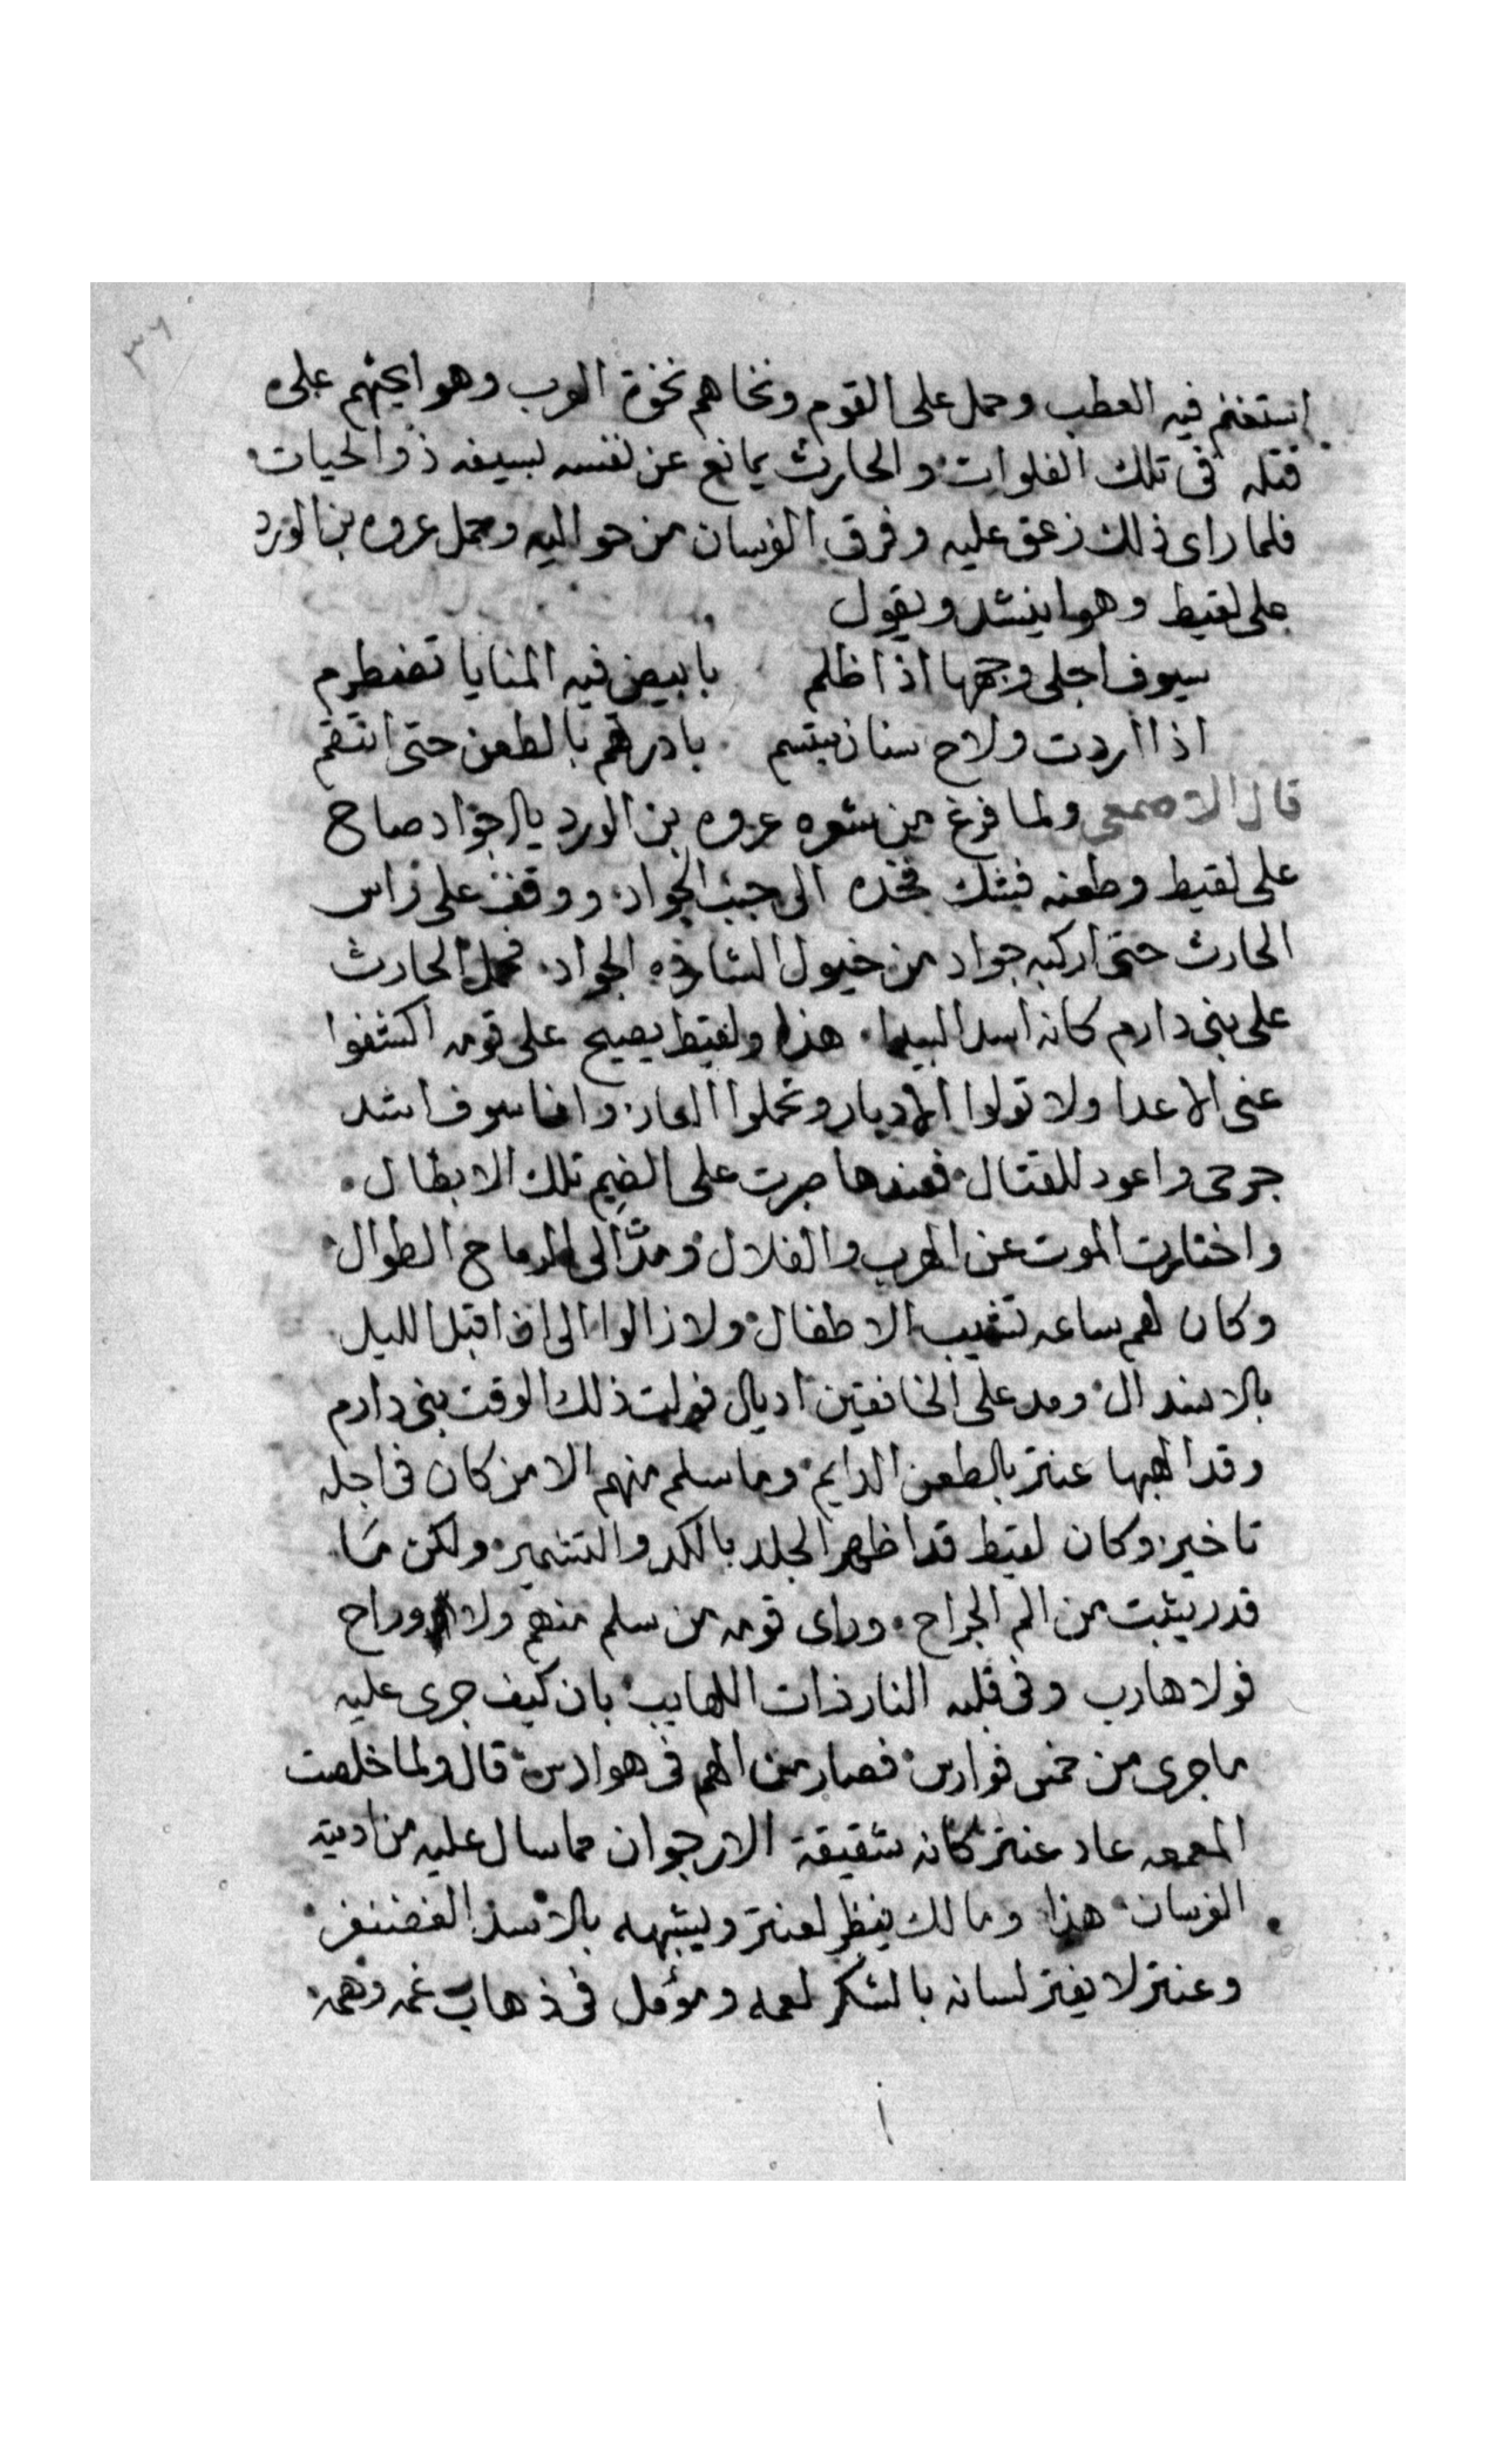 ٣٦
استغنم فيه العطب وحمل على القوم ونخاهم نخوة العرب وهو ايحثهم على
قتله في تلك الفلوات والحارث يمانع عن نفسه بسيفه ذو الحيات
فلما راى ذلك زعق عليه وفرق الفرسان من حواليه وحمل عروه بن الورد
على لقيط وهو اينشد ويقول
سيوف اجلى وجهها اذا ظلم بابيض فيه المنايا تضطرم
اذا اردت ولاح سنان يبتسم بادرتهم بالطعن حتى انتقم
قال الاصمعي ولما فرغ من شعره عروه بن الورد يال جواد صاح
على لقيط وطعنه فشك فخده الى جنب الجواد ووقف على راس
الحارث حتى اركبه جواد من خيول الشارده الجواد فحمل الحارث
على بني دارم كانه اسد البيدا هذا ولقيط يصيح على قومه اكشفوا
عني الاعدا ولا تولوا الادبار وتحملوا العار وانا سوف اشد
جرحى واعود للقتال فعندها صبرت على الضيم تلك الابطال
واختارت الموت عن الهرب والفلال ومدت الى الرماح الطوال
وكان لهم ساعه تشيب الاطفال ولا زالوا الى ان اقبل الليل
بالاسدال ومد على الخافقين اديال فولت ذلك الوقت بني دارم
وقد الهبها عنتر بالطعن الدايم وما سلم منهم الا من كان في اجله
تاخير وكان لقيط قد اظهر الجلد بالكد والتشمير ولكن ما
قدر يثبت من الم الجراح وراى قومه من سلم منهم ولا وراح
فولا هارب وفي قلبه النار ذات اللهايب بان كيف جرى عليه
ما جرى من خمس فوارس فصار من الهم في هوادس قال ولما خلصت
المعمعه عاد عنتر كانه شقيقة الارجوان مما سال عليه من ادمية
الفرسان هذا ومالك ينظر لعنتر ويشبهه بالاسد الغضنفر
وعنتر لا يفتر لسانه بالشكر لعمه ومؤمل في ذهاب غمه وهمه